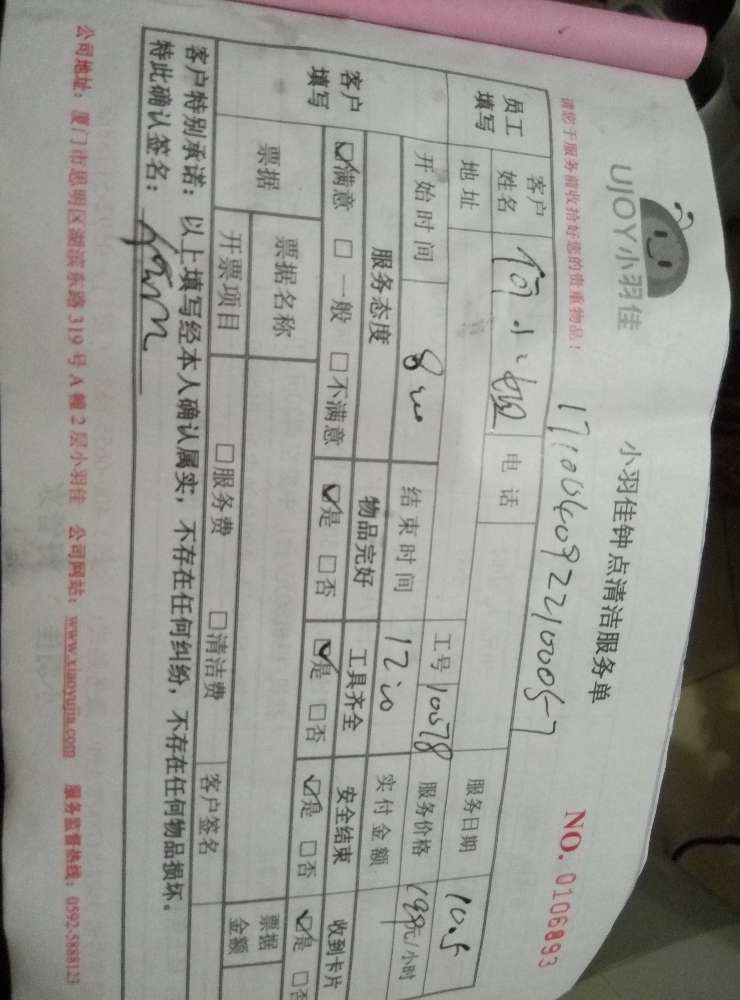 UJOY小羽佳
小羽佳钟点清洁服务单
NO. 0106893
请您于服务前收拾好您的贵重物品！
1710040922100057
员工填写 客户姓名 何小姐 电话 工号 10078 服务日期 10.5
地址 服务价格 199元/小时
客户填写 开始时间 8:00 结束时间 12:00 实付金额
服务态度 物品完好 工具齐全 安全结束 收到卡片
☑满意 □一般 □不满意 ☑是 □否 ☑是 □否 ☑是 □否 ☑是 □否
票据 票据名称 票据金额
开票项目 □服务费 □清洁费 客户签名
客户特别承诺：以上填写经本人确认属实，不存在任何纠纷，不存在任何物品损坏。
特此确认签名：
公司地址：厦门市思明区湖滨东路319号A幢2层小羽佳 公司网站：www.xiaoyujia.com 服务监督热线：0592-5888123